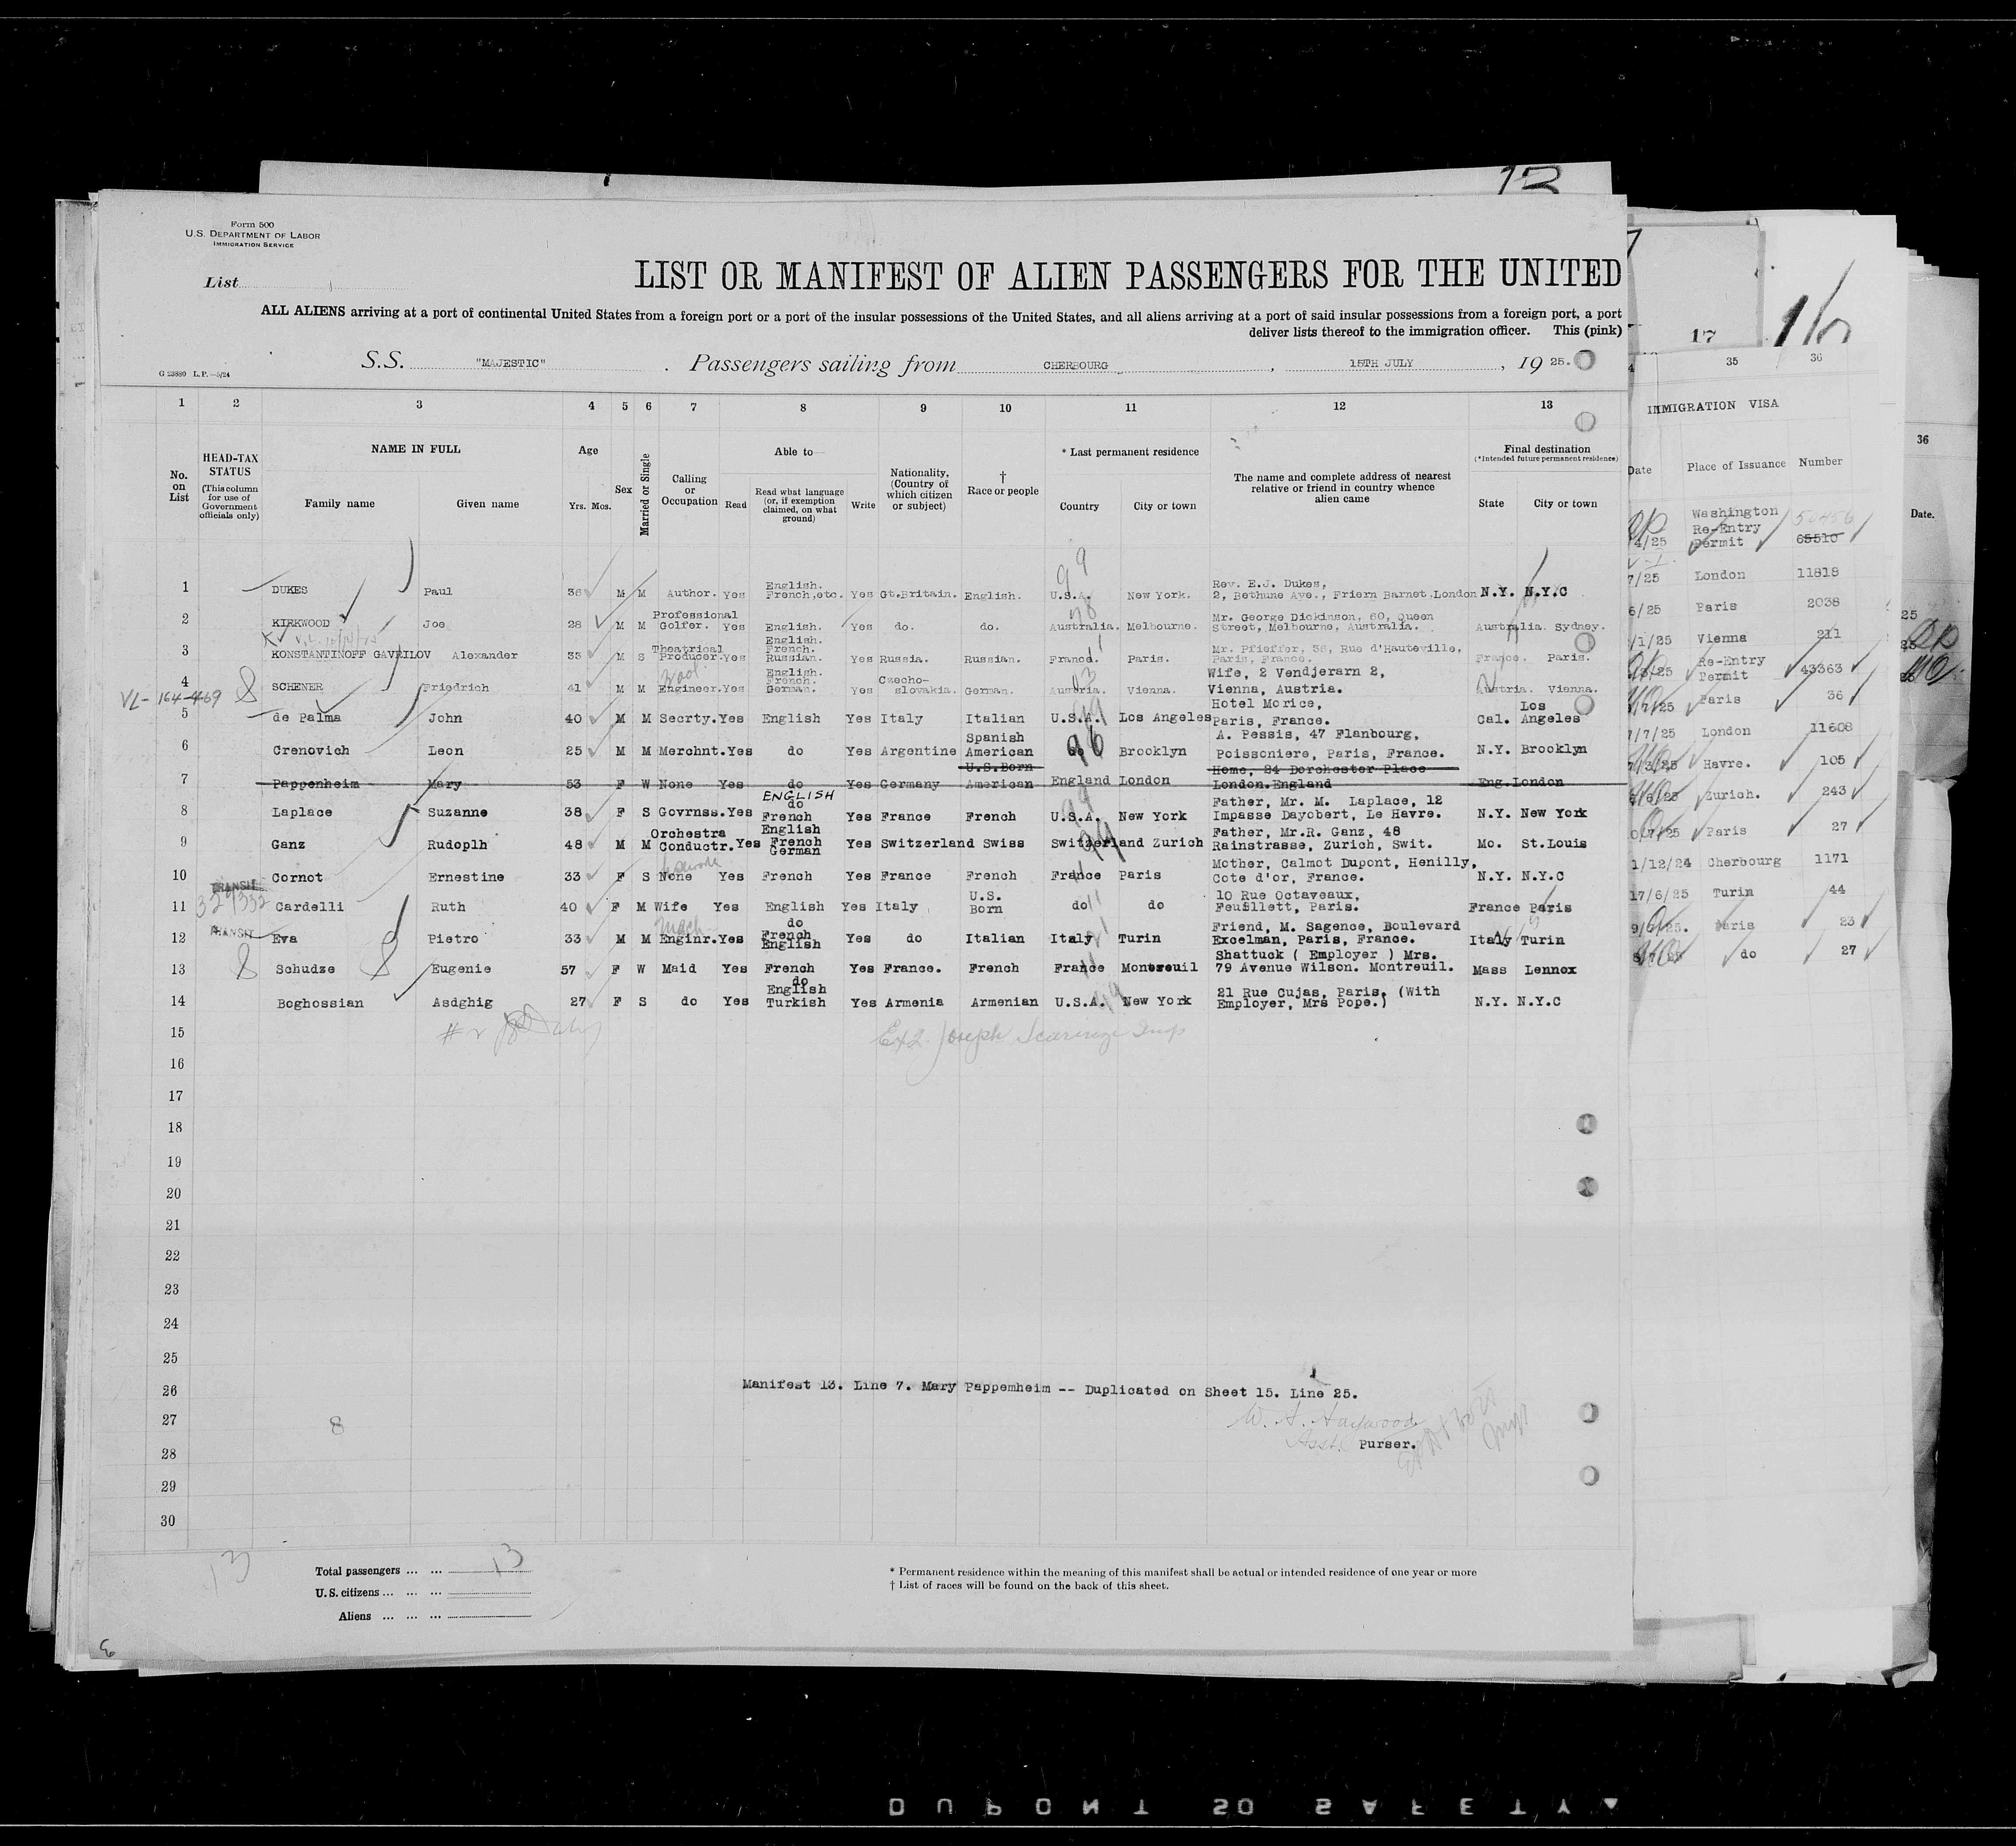 12
Form 500
U.S. DEPARTMENT OF LABOR
IMMIGRATION SERVICE
List
LIST OR MANIFEST OF ALIEN PASSENGERS FOR THE UNITED
ALL ALIENS arriving at a port of continental United States from a foreign port or a port of the insular possessions of the United States, and all aliens arriving at a port of said insular possessions from a foreign port, a port
deliver lists thereof to the immigration officer. This (pink)
S.S. "MAJESTIC" . Passengers sailing from CHERBOURG , 15TH JULY , 19 25.
G 23880 L.P.—5/24
1 2 3 4 5 6 7 8 9 10 11 12 13
No. on List
HEAD-TAX STATUS (This column for use of Government officials only)
NAME IN FULL
Family name Given name
Age
Yrs. Mos.
Sex
Married or Single
Calling or Occupation
Able to—
Read
Read what language (or, if exemption claimed, on what ground)
Write
Nationality, (Country of which citizen or subject)
† Race or people
* Last permanent residence
Country City or town
The name and complete address of nearest relative or friend in country whence alien came
Final destination
(*Intended future permanent residence)
State City or town
1 DUKES Paul 36 M M Author. Yes English. French,etc. Yes Gt.Britain. English. U.S.A. New York. Rev. E.J. Dukes, 2, Bethune Ave., Friern Barnet,London N.Y. N.Y.C
2 KIRKWOOD Joe 28 M M Professional Golfer. Yes English. Yes do. do. Australia. Melbourne. Mr. George Dickinson, 60, Queen Street, Melbourne, Australia. Australia. Sydney.
3 KONSTANTINOFF GAVRILOV Alexander 33 M S Theatrical Producer. Yes English. French. Russian. Yes Russia. Russian. France. Paris. Mr. Pfieffer, 36, Rue d'Hauteville, Paris, France. France. Paris.
VL- 164-469
4 SCHENER Friedrich 41 M M Engineer. Yes English. French. German. Yes Czecho-slovakia. German. Austria. Vienna. Wife, 2 Vendjerarn 2, Vienna, Austria. Austria. Vienna.
5 de Palma John 40 M M Secrty. Yes English Yes Italy Italian U.S.A. Los Angeles Hotel Morice, Paris, France. Cal. Los Angeles
6 Crenovich Leon 25 M M Merchnt. Yes do Yes Argentine Spanish American do Brooklyn A. Pessis, 47 Flanbourg, Poissoniere, Paris, France. N.Y. Brooklyn
7 Pappenheim Mary 53 F W None Yes do Yes Germany U.S.Born American England London Home, 24 Dorchester Place London.England Eng. London
8 Laplace Suzanne 38 F S Govrnss. Yes ENGLISH do French Yes France French U.S.A. New York Father, Mr. M. Laplace, 12 Impasse Dayobert, Le Havre. N.Y. New York
9 Ganz Rudoplh 48 M M Orchestra Conductr. Yes English French German Yes Switzerland Swiss Switzerland Zurich Father, Mr.R. Ganz, 48 Rainstrasse, Zurich, Swit. Mo. St.Louis
10 Cornot Ernestine 33 F S None Yes French Yes France French France Paris Mother, Calmot Dupont, Henilly, Cote d'or, France. N.Y. N.Y.C
TRANSIT
11 Cardelli Ruth 40 F M Wife Yes English Yes Italy U.S. Born do do 10 Rue Octaveaux, Feuillett, Paris. France Paris
TRANSIT
12 Eva Pietro 33 M M Enginr. Yes do French English Yes do Italian Italy Turin Friend, M. Sagence, Boulevard Excelman, Paris, France. Italy Turin
13 Schudze Eugenie 57 F W Maid Yes French Yes France. French France Montreuil Shattuck ( Employer ) Mrs. 79 Avenue Wilson. Montreuil. Mass Lennox
14 Boghossian Asdghig 27 F S do Yes do English Turkish Yes Armenia Armenian U.S.A. New York 21 Rue Cujas, Paris. (With Employer, Mrs Pope.) N.Y. N.Y.C
15
16
17
18
19
20
21
22
23
24
25
26 Manifest 13. Line 7. Mary Pappemheim -- Duplicated on Sheet 15. Line 25.
27
8
W. A. Haywood
Asst. Purser.
28
29
30
13
Total passengers ... ... 13
U.S. citizens ... ... ...
Aliens ... ... ...
* Permanent residence within the meaning of this manifest shall be actual or intended residence of one year or more
† List of races will be found on the back of this sheet.
17
35 36
IMMIGRATION VISA
Date Place of Issuance Number
4/25 Washington Re-Entry Permit 65510
7/25 London 11818
6/25 Paris 2038
/1/25 Vienna 211
/25 Re-Entry Permit 43363
/25 Paris 36
7/7/25 London 11608
/25 Havre. 105
/25 Zurich. 243
/25 Paris 27
1/12/24 Cherbourg 1171
17/6/25 Turin 44
9/ /25. Paris 23
/25 do 27
36
Date.
25
DUPONT SO SAFETY